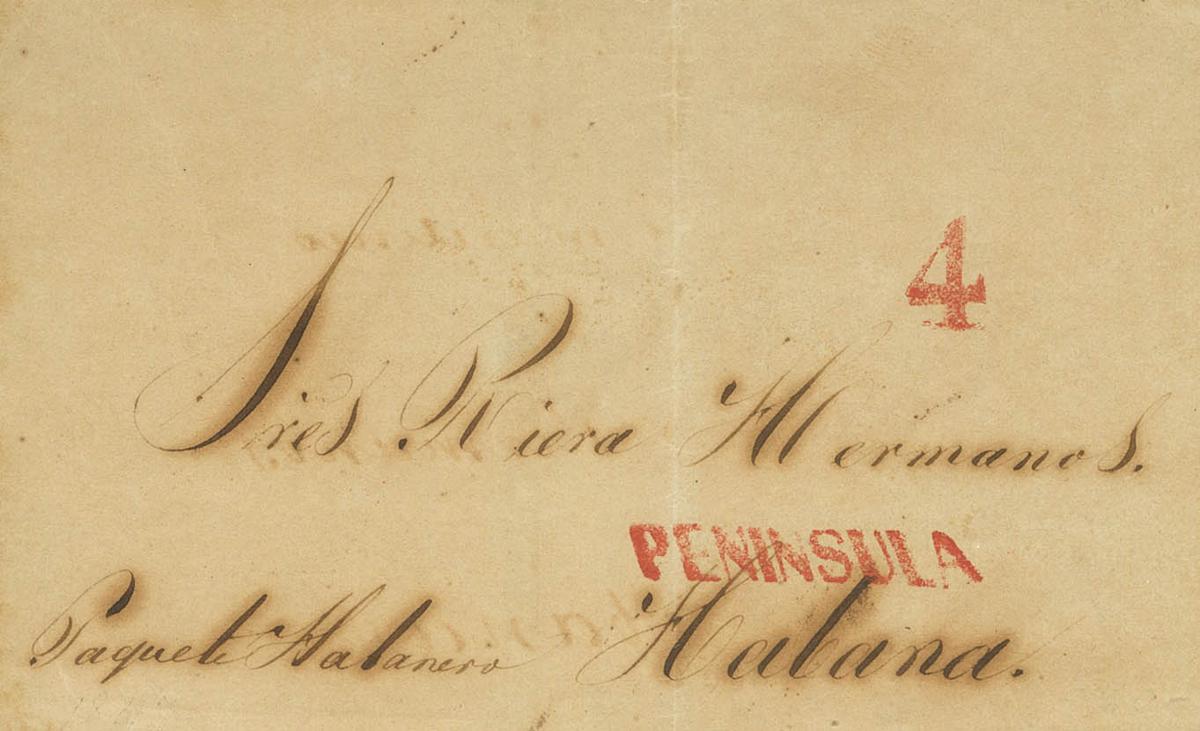 4
Sres Riera Hermanos.
PENINSULA
Paquete Habanero Habana.